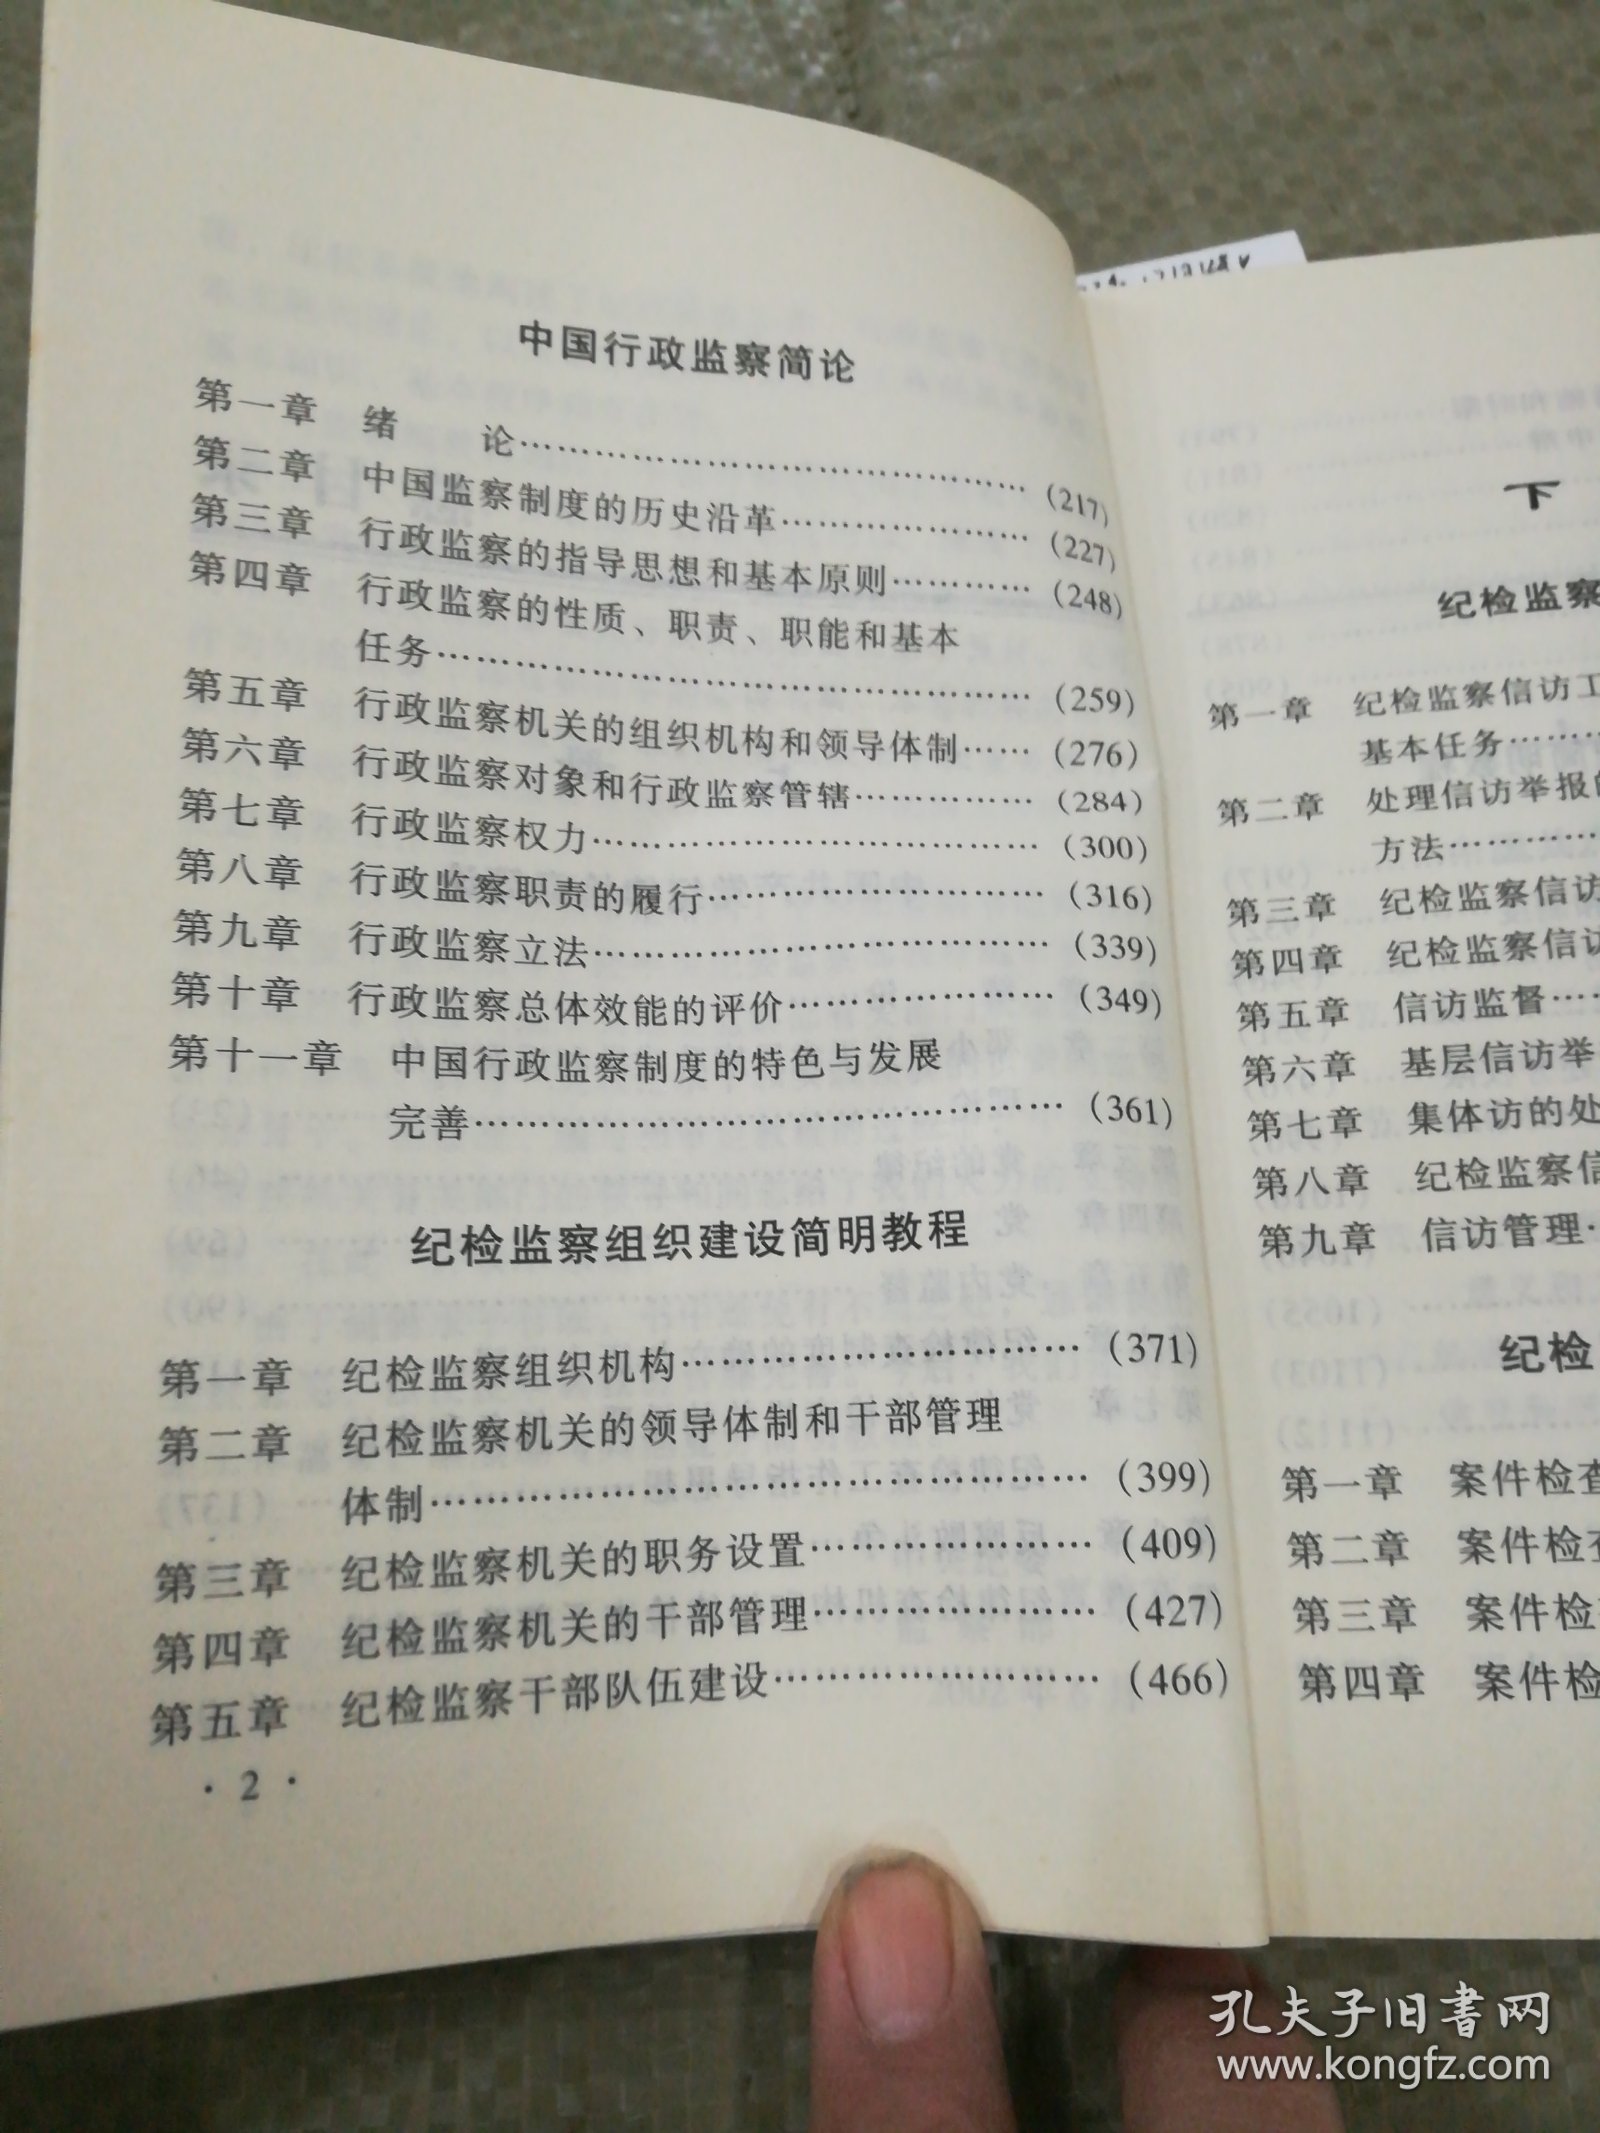 中国行政监察简论
第一章 绪 论…………………………………(217)
第二章 中国监察制度的历史沿革………………(227)
第三章 行政监察的指导思想和基本原则…………(248)
第四章 行政监察的性质、职责、职能和基本
任务………………………………………(259)
第五章 行政监察机关的组织机构和领导体制……(276)
第六章 行政监察对象和行政监察管辖……………(284)
第七章 行政监察权力……………………………(300)
第八章 行政监察职责的履行……………………(316)
第九章 行政监察立法……………………………(339)
第十章 行政监察总体效能的评价…………………(349)
第十一章 中国行政监察制度的特色与发展
完善……………………………………(361)
纪检监察组织建设简明教程
第一章 纪检监察组织机构…………………………(371)
第二章 纪检监察机关的领导体制和干部管理
体制…………………………………………(399)
第三章 纪检监察机关的职务设置…………………(409)
第四章 纪检监察机关的干部管理…………………(427)
第五章 纪检监察干部队伍建设……………………(466)
· 2 ·
下
纪检监察
第一章 纪检监察信访工
基本任务………
第二章 处理信访举报的
方法…………
第三章 纪检监察信访
第四章 纪检监察信访
第五章 信访监督……
第六章 基层信访举
第七章 集体访的处
第八章 纪检监察信
第九章 信访管理…
纪检
第一章 案件检查
第二章 案件检查
第三章 案件检
第四章 案件检
孔夫子旧书网
www.kongfz.com